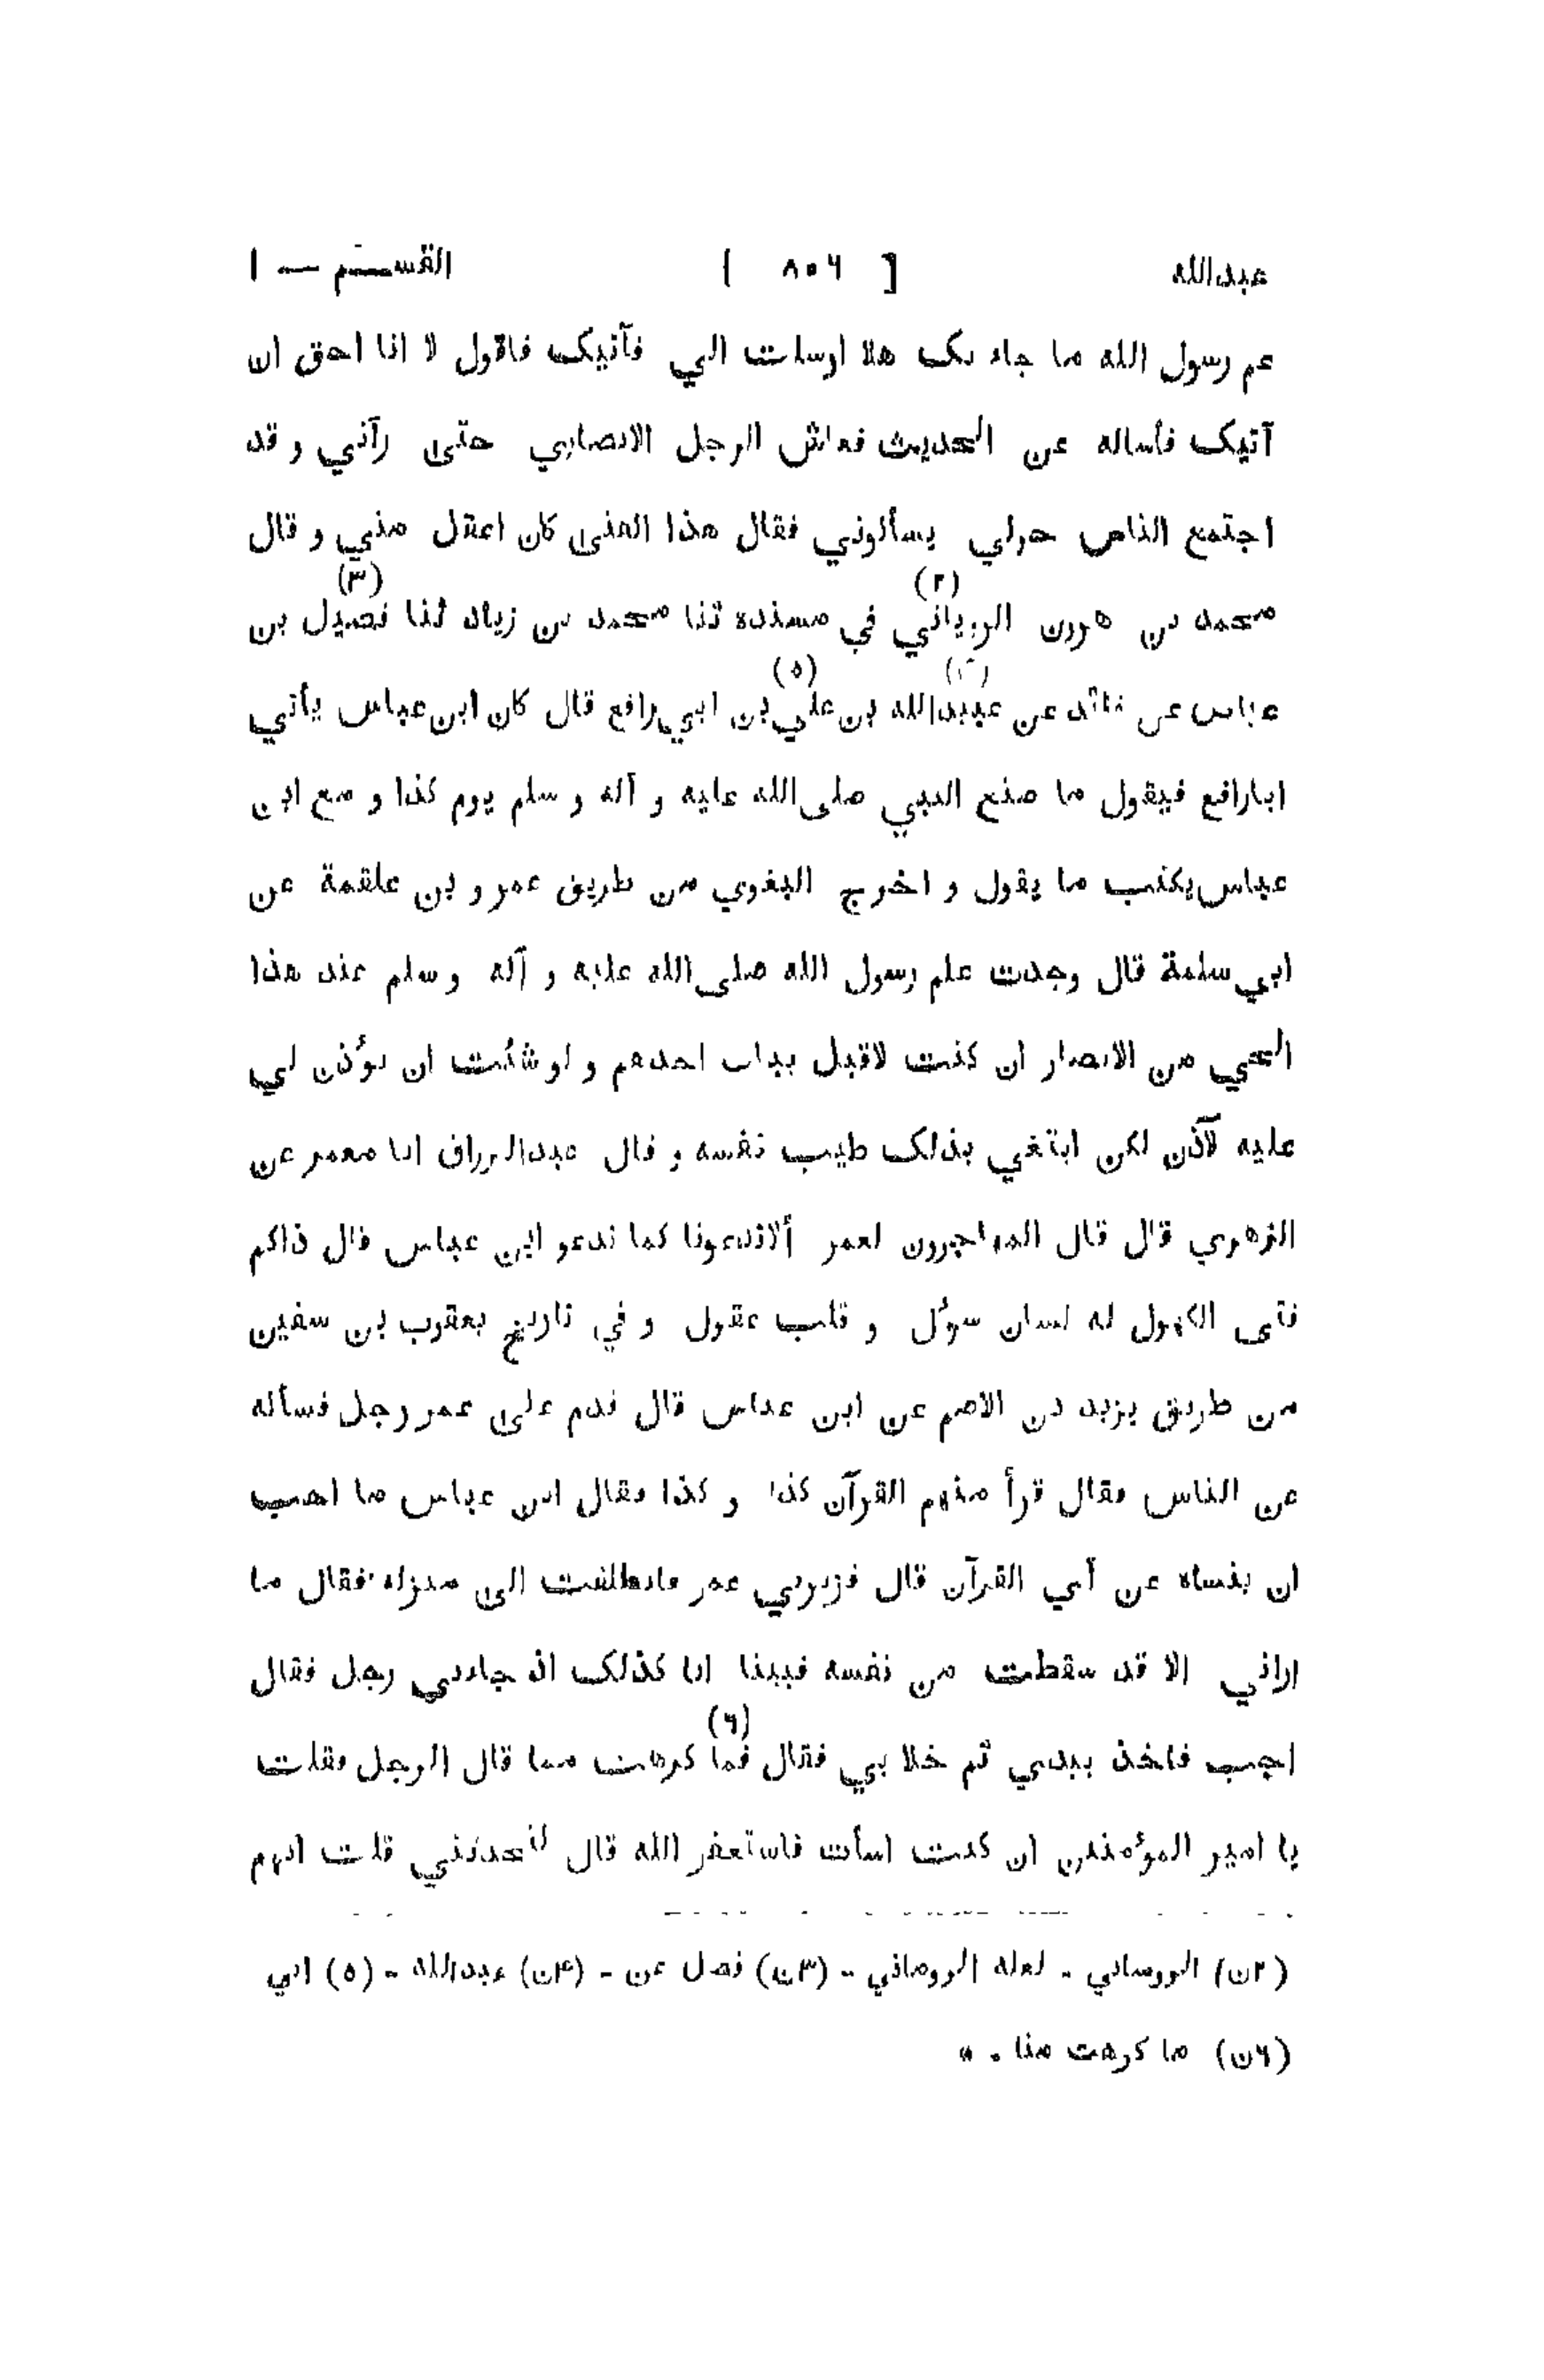 عبدالله [ ٨٠٦ ] القسم — ١
عم رسول الله ما جاء بك هلا ارسلت الي فآتيك فاقول لا انا احق ان
آتيك فأساله عن الحديث فعاش الرجل الانصاري حتى رآني و قد
اجتمع الناس حولي يسألوني فقال هذا الفتى كان اعقل مني و قال
محمد بن هرون الروياني (٢) في مسنده ثنا محمد بن زياد ثنا فضيل (٣) بن
عباس عن فائد عن عبيدالله (٤) بن علي بن (٥) ابي رافع قال كان ابن عباس يأتي
ابارافع فيقول ما صنع النبي صلى الله عليه و آله و سلم يوم كذا و مع ابن
عباس يكتب ما يقول و اخرج البغوي من طريق عمرو بن علقمة عن
ابي سلمة قال وجدت علم رسول الله صلى الله عليه و آله و سلم عند هذا
الحي من الانصار ان كنت لاقيل بباب احدهم و لو شئت ان يؤذن لي
عليه لآذن لكن ابتغي بذلك طيب نفسه و قال عبدالرزاق انا معمر عن
الزهري قال قال المهاجرون لعمر ألاتدعونا كما تدعو ابن عباس قال ذاكم
فتى الكهول له لسان سؤل و قلب عقول و في تاريخ يعقوب بن سفين
من طريق يزيد بن الاصم عن ابن عباس قال قدم على عمر رجل فسأله
عن الناس فقال قرأ منهم القرآن كذا و كذا فقال ابن عباس ما احب
ان يتسأه عن آي القرآن قال فزبرني عمر فانطلقت الى منزله فقال ما
اراني الا قد سقطت من نفسه فبينا انا كذلك اذ جاءني رجل فقال
اجب فاخذ بيدي ثم خلا بي فقال فما (٦) كرهت مما قال الرجل فقلت
يا امير المؤمنين ان كنت اسأت فاستغفر الله قال لتحدثني قلت انهم
(٢ن) الروساني - لعله الروماني - (٣ن) فصل عن - (٤ن) عبدالله - (٥) ابي
(٦ن) ما كرهت منا . *